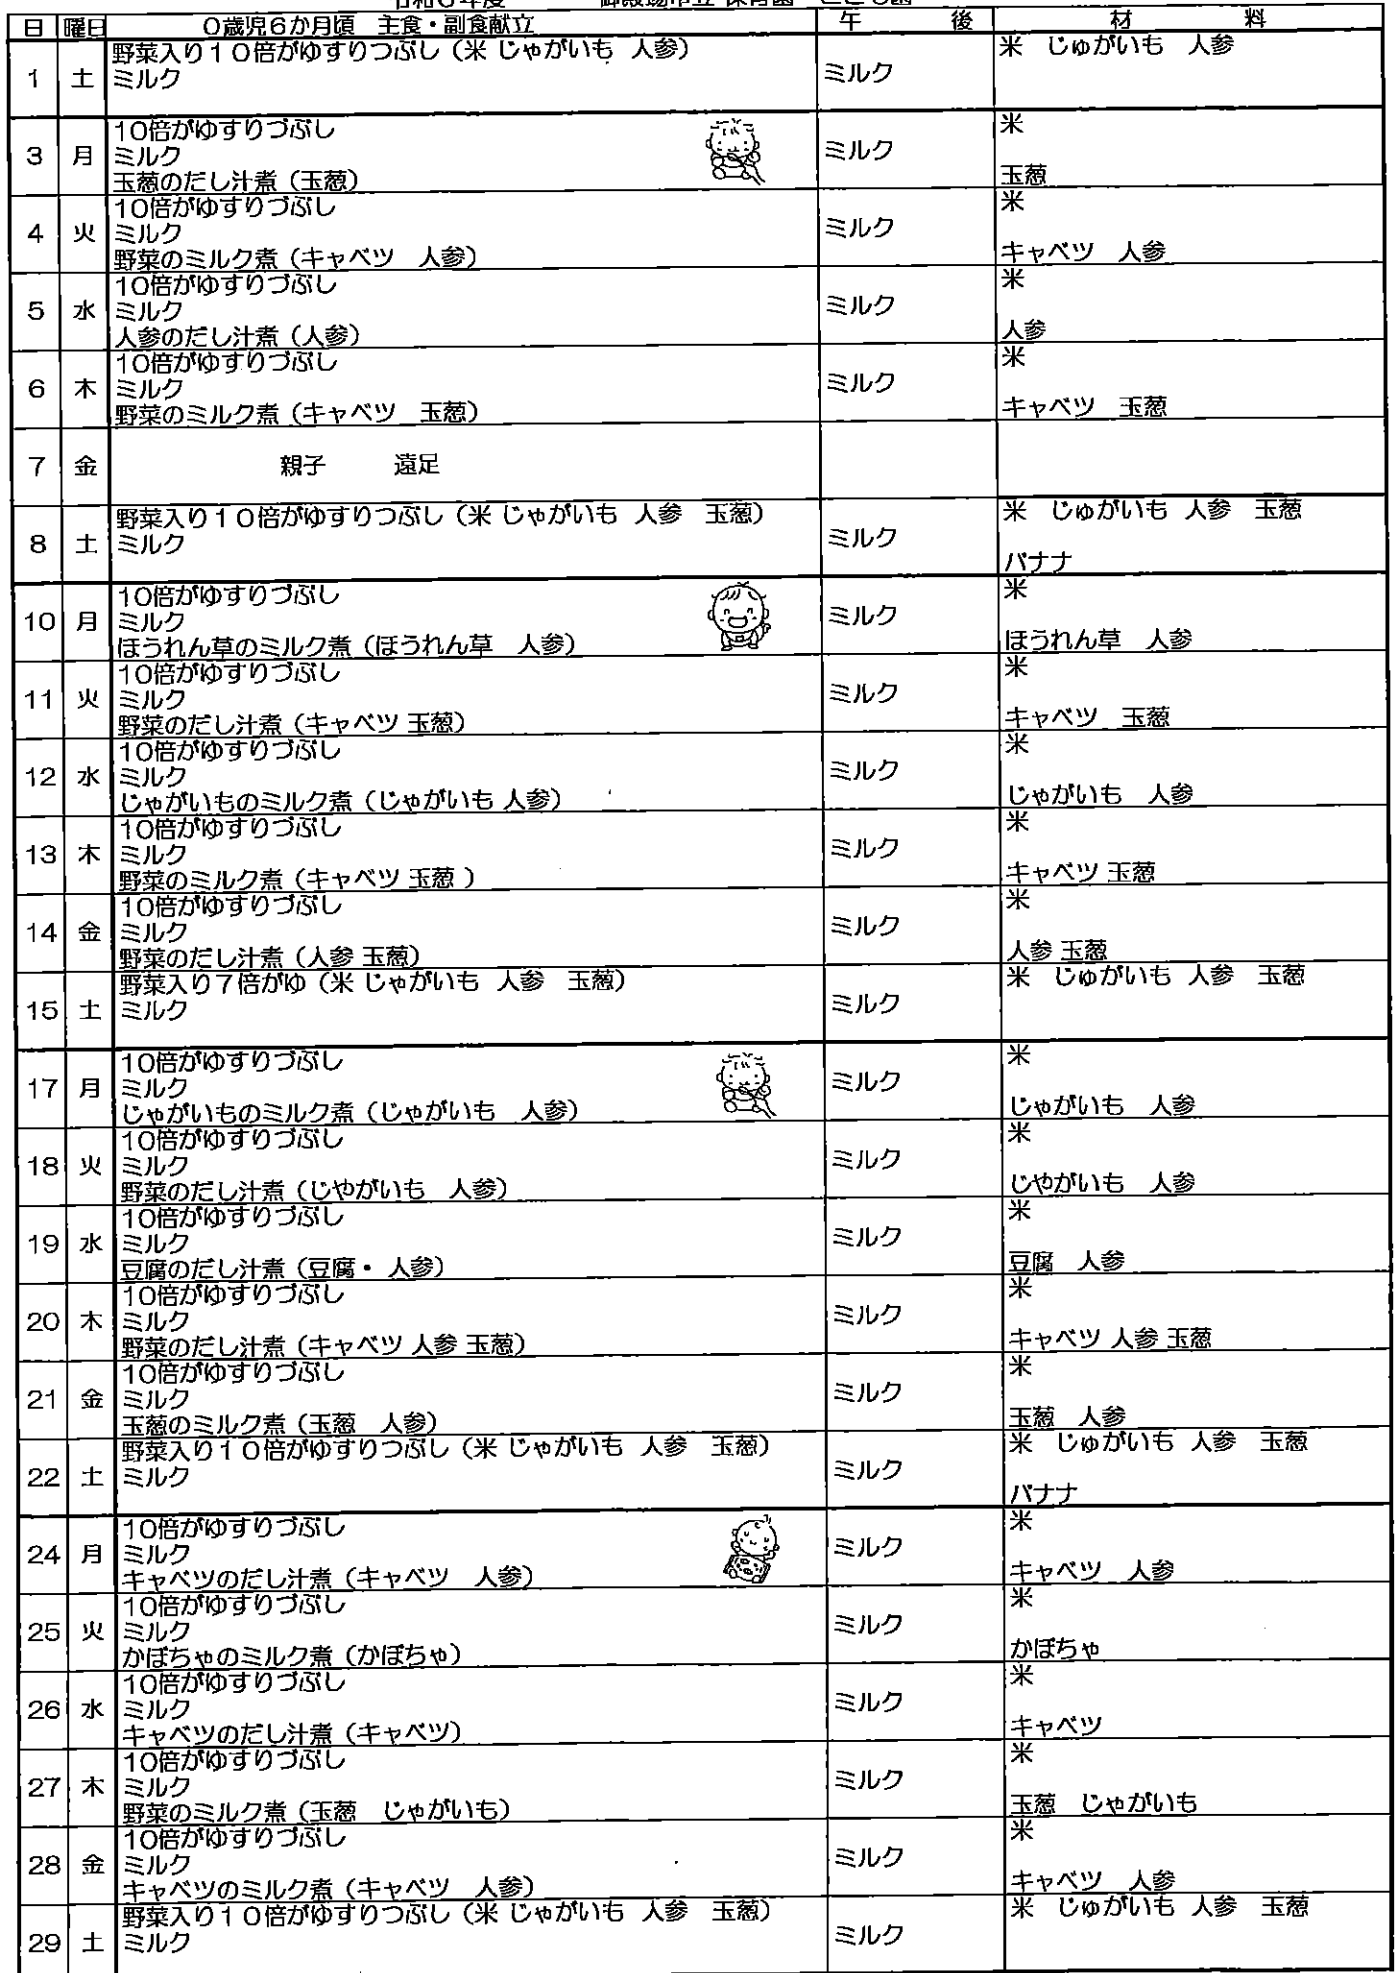 日 曜日 0歳児6か月頃 主食・副食献立 午 後 材 料
1 土 野菜入り10倍がゆすりつぶし（米 じゃがいも 人参） ミルク 米 じゅがいも 人参
ミルク
3 月 10倍がゆすりづぶし ミルク 米
ミルク
玉葱のだし汁煮（玉葱） 玉葱
4 火 10倍がゆすりづぶし ミルク 米
ミルク
野菜のミルク煮（キャベツ 人参） キャベツ 人参
5 水 10倍がゆすりづぶし ミルク 米
ミルク
人参のだし汁煮（人参） 人参
6 木 10倍がゆすりづぶし ミルク 米
ミルク
野菜のミルク煮（キャベツ 玉葱） キャベツ 玉葱
7 金 親子 遠足
8 土 野菜入り10倍がゆすりつぶし（米 じゃがいも 人参 玉葱） ミルク 米 じゅがいも 人参 玉葱
ミルク
バナナ
10 月 10倍がゆすりづぶし ミルク 米
ミルク
ほうれん草のミルク煮（ほうれん草 人参） ほうれん草 人参
11 火 10倍がゆすりづぶし ミルク 米
ミルク
野菜のだし汁煮（キャベツ 玉葱） キャベツ 玉葱
12 水 10倍がゆすりづぶし ミルク 米
ミルク
じゃがいものミルク煮（じゃがいも 人参） じゃがいも 人参
13 木 10倍がゆすりづぶし ミルク 米
ミルク
野菜のミルク煮（キャベツ 玉葱 ） キャベツ 玉葱
14 金 10倍がゆすりづぶし ミルク 米
ミルク
野菜のだし汁煮（人参 玉葱） 人参 玉葱
15 土 野菜入り7倍がゆ（米 じゃがいも 人参 玉葱） ミルク 米 じゅがいも 人参 玉葱
ミルク
17 月 10倍がゆすりづぶし ミルク 米
ミルク
じゃがいものミルク煮（じゃがいも 人参） じゃがいも 人参
18 火 10倍がゆすりづぶし ミルク 米
ミルク
野菜のだし汁煮（じやがいも 人参） じやがいも 人参
19 水 10倍がゆすりづぶし ミルク 米
ミルク
豆腐のだし汁煮（豆腐・ 人参） 豆腐 人参
20 木 10倍がゆすりづぶし ミルク 米
ミルク
野菜のだし汁煮（キャベツ 人参 玉葱） キャベツ 人参 玉葱
21 金 10倍がゆすりづぶし ミルク 米
ミルク
玉葱のミルク煮（玉葱 人参） 玉葱 人参
22 土 野菜入り10倍がゆすりつぶし（米 じゃがいも 人参 玉葱） ミルク 米 じゅがいも 人参 玉葱
ミルク
バナナ
24 月 10倍がゆすりづぶし ミルク 米
ミルク
キャベツのだし汁煮（キャベツ 人参） キャベツ 人参
25 火 10倍がゆすりづぶし ミルク 米
ミルク
かぼちゃのミルク煮（かぼちゃ） かぼちゃ
26 水 10倍がゆすりづぶし ミルク 米
ミルク
キャベツのだし汁煮（キャベツ） キャベツ
27 木 10倍がゆすりづぶし ミルク 米
ミルク
野菜のミルク煮（玉葱 じゃがいも） 玉葱 じゃがいも
28 金 10倍がゆすりづぶし ミルク 米
ミルク
キャベツのミルク煮（キャベツ 人参） キャベツ 人参
29 土 野菜入り10倍がゆすりつぶし（米 じゃがいも 人参 玉葱） ミルク 米 じゅがいも 人参 玉葱
ミルク